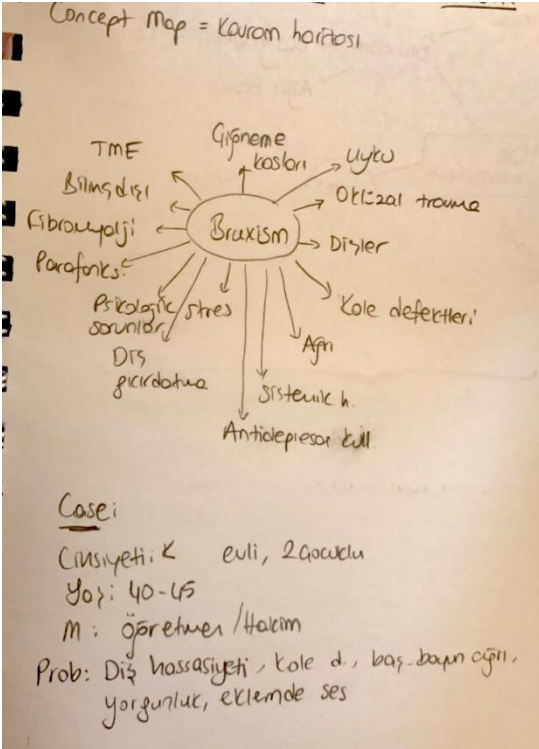 Concept Map = Kavram haritası
Çiğneme
kasları
TME
Uyku
Bilinçdışı
Oklüzal travma
Fibromyalji
Bruxism
Dişler
Parafonks.
Kole defektleri
Psikolojik/stres
sorunlar
Ağrı
Diş
gıcırdatma
Sistemik h.
Antidepresan kull.
Case:
Cinsiyeti: K evli, 2 çocuklu
Yaş: 40-45
M: Öğretmen/Hakim
Prob: Diş hassasiyeti, kole d., baş-boyun ağrı,
yorgunluk, eklemde ses